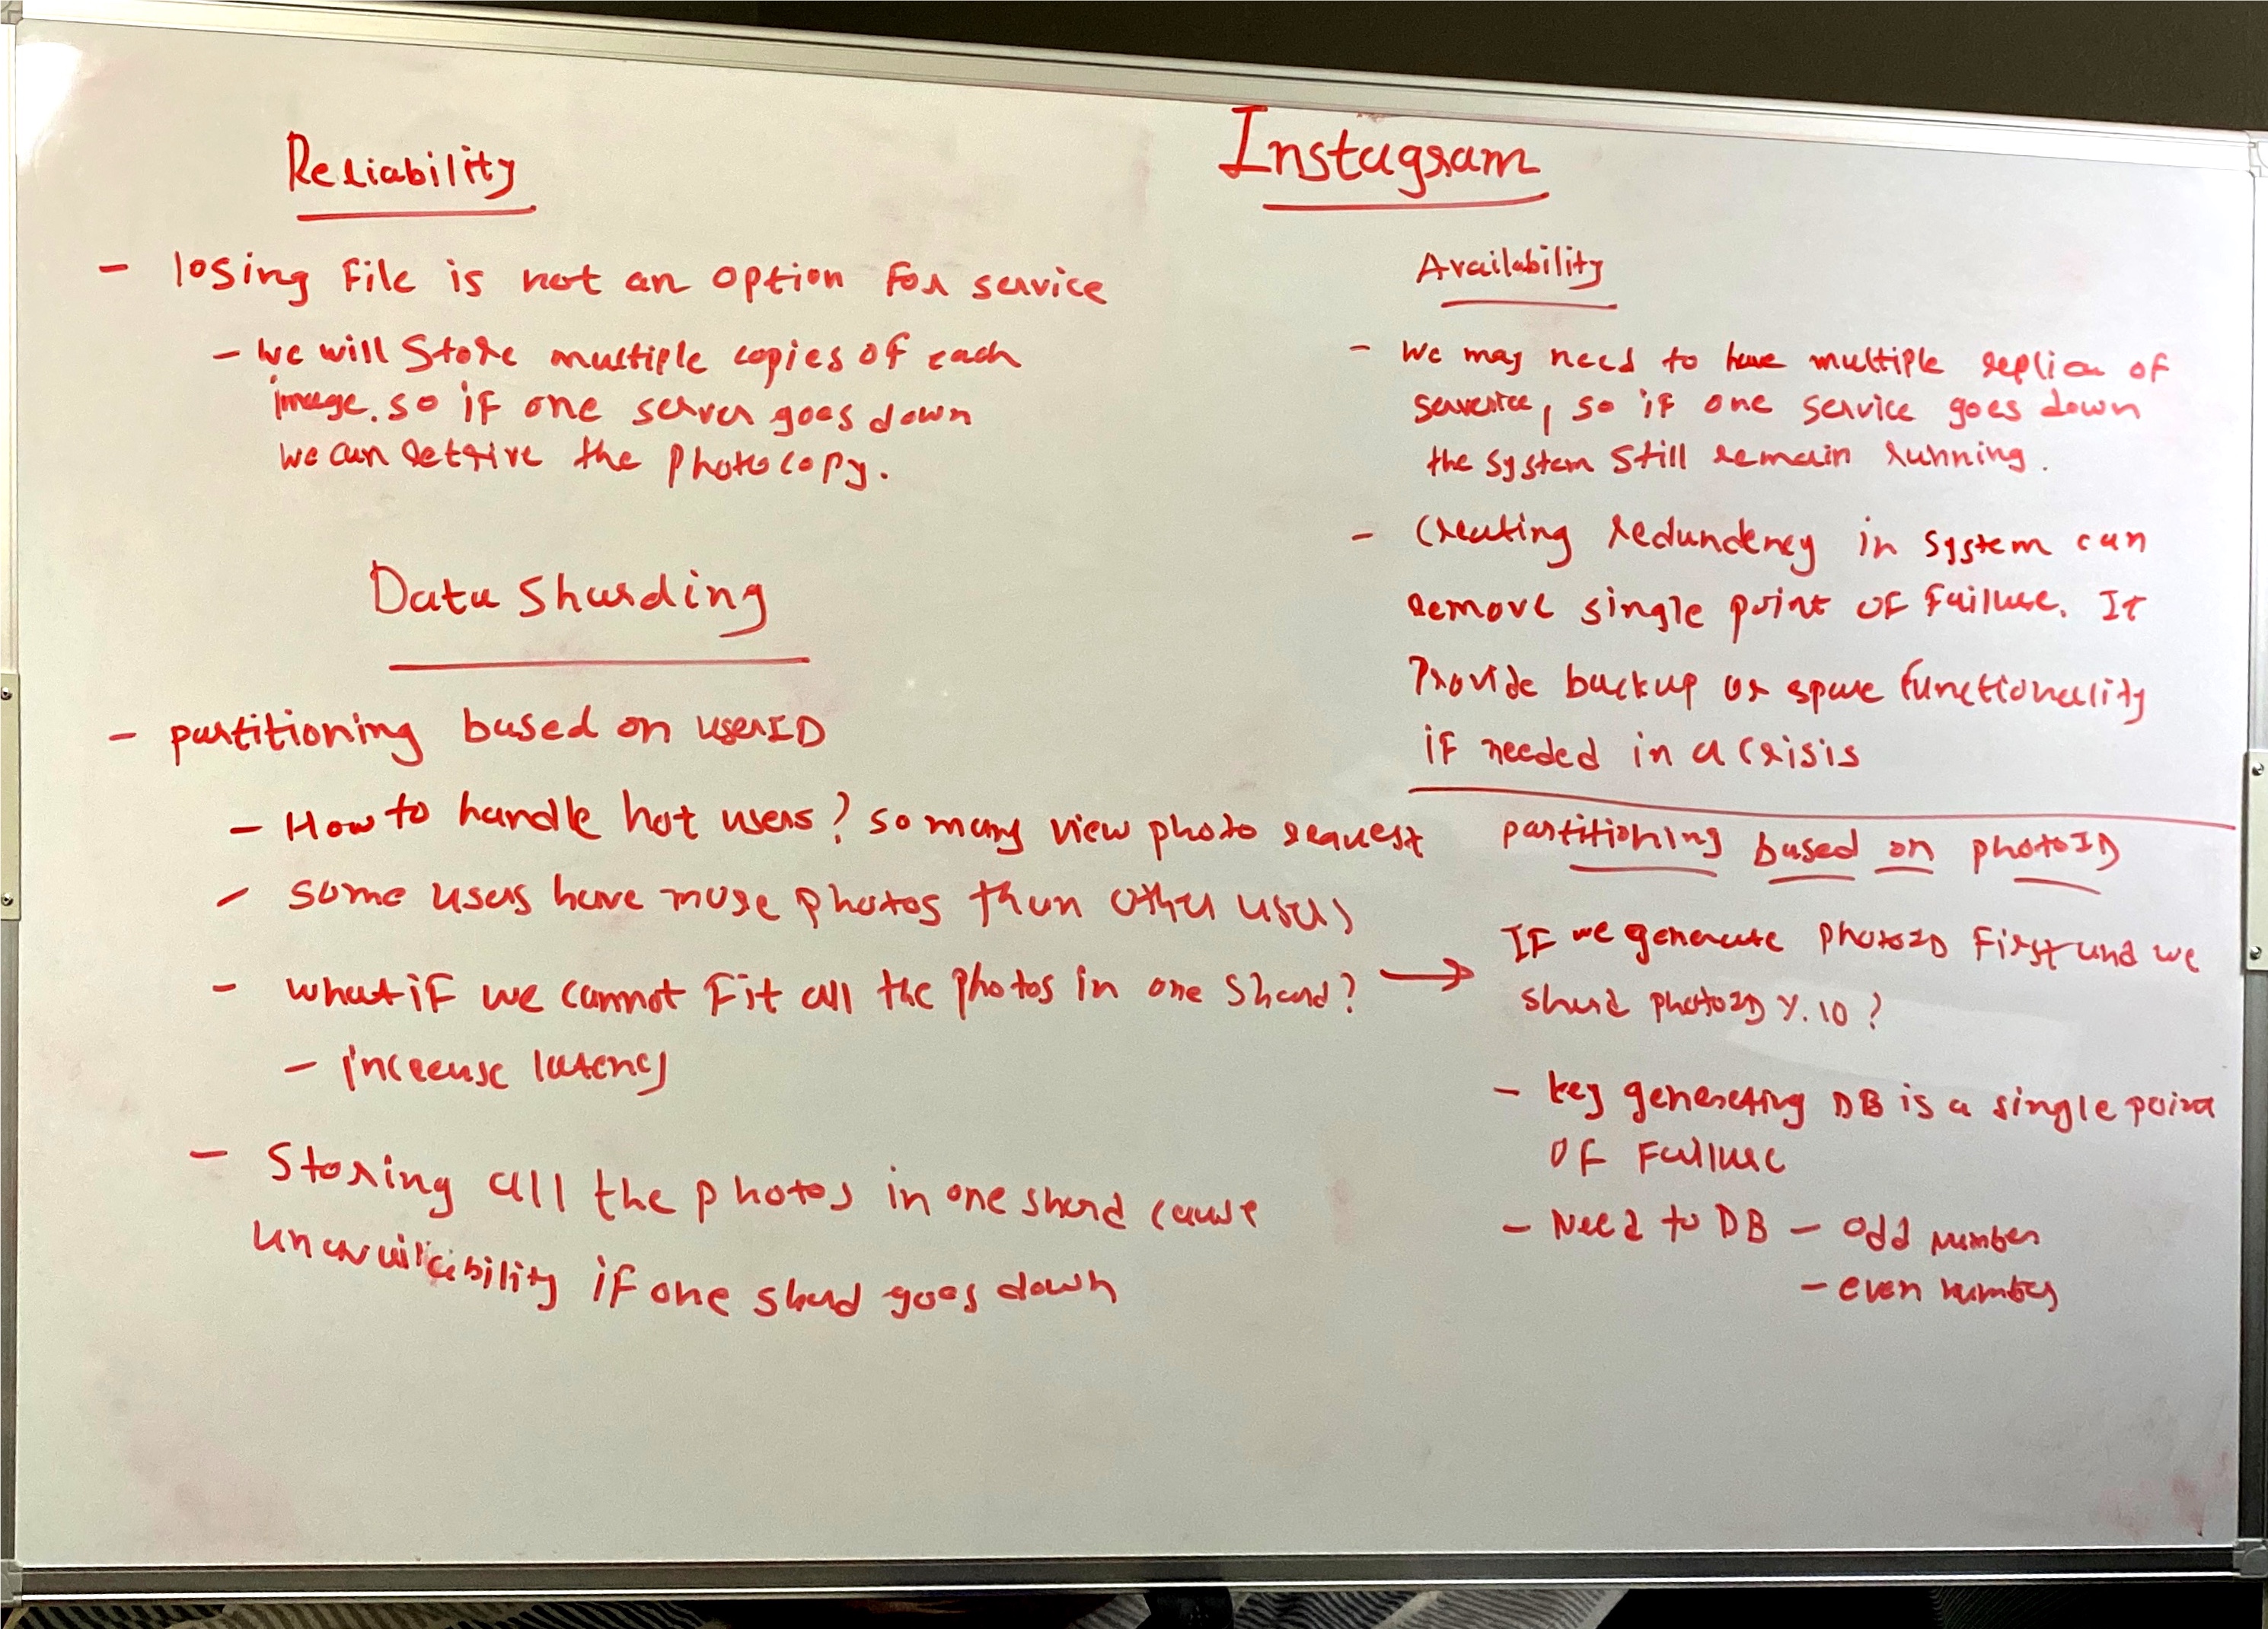 Instagram
Reliability
- losing file is not an option for service
- we will store multiple copies of each
image. so if one server goes down
we can retrive the photocopy.
Data Sharding
- partitioning based on userID
- How to handle hot users? so many view photo request
- some users have more photos than other users
- what if we cannot fit all the photos in one shard? →
- increase latency
- Storing all the photos in one shard cause
unavailability if one shard goes down
Availability
- we may need to have multiple replica of
service, so if one service goes down
the system still remain running.
- Creating redundency in system can
remove single point of failure. It
Provide backup or spare functionality
if needed in a crisis
partitioning based on photoID
If we generate photoID first and we
shard photoID %10?
- key generating DB is a single point
of failure
- Need to DB - odd number
- even number